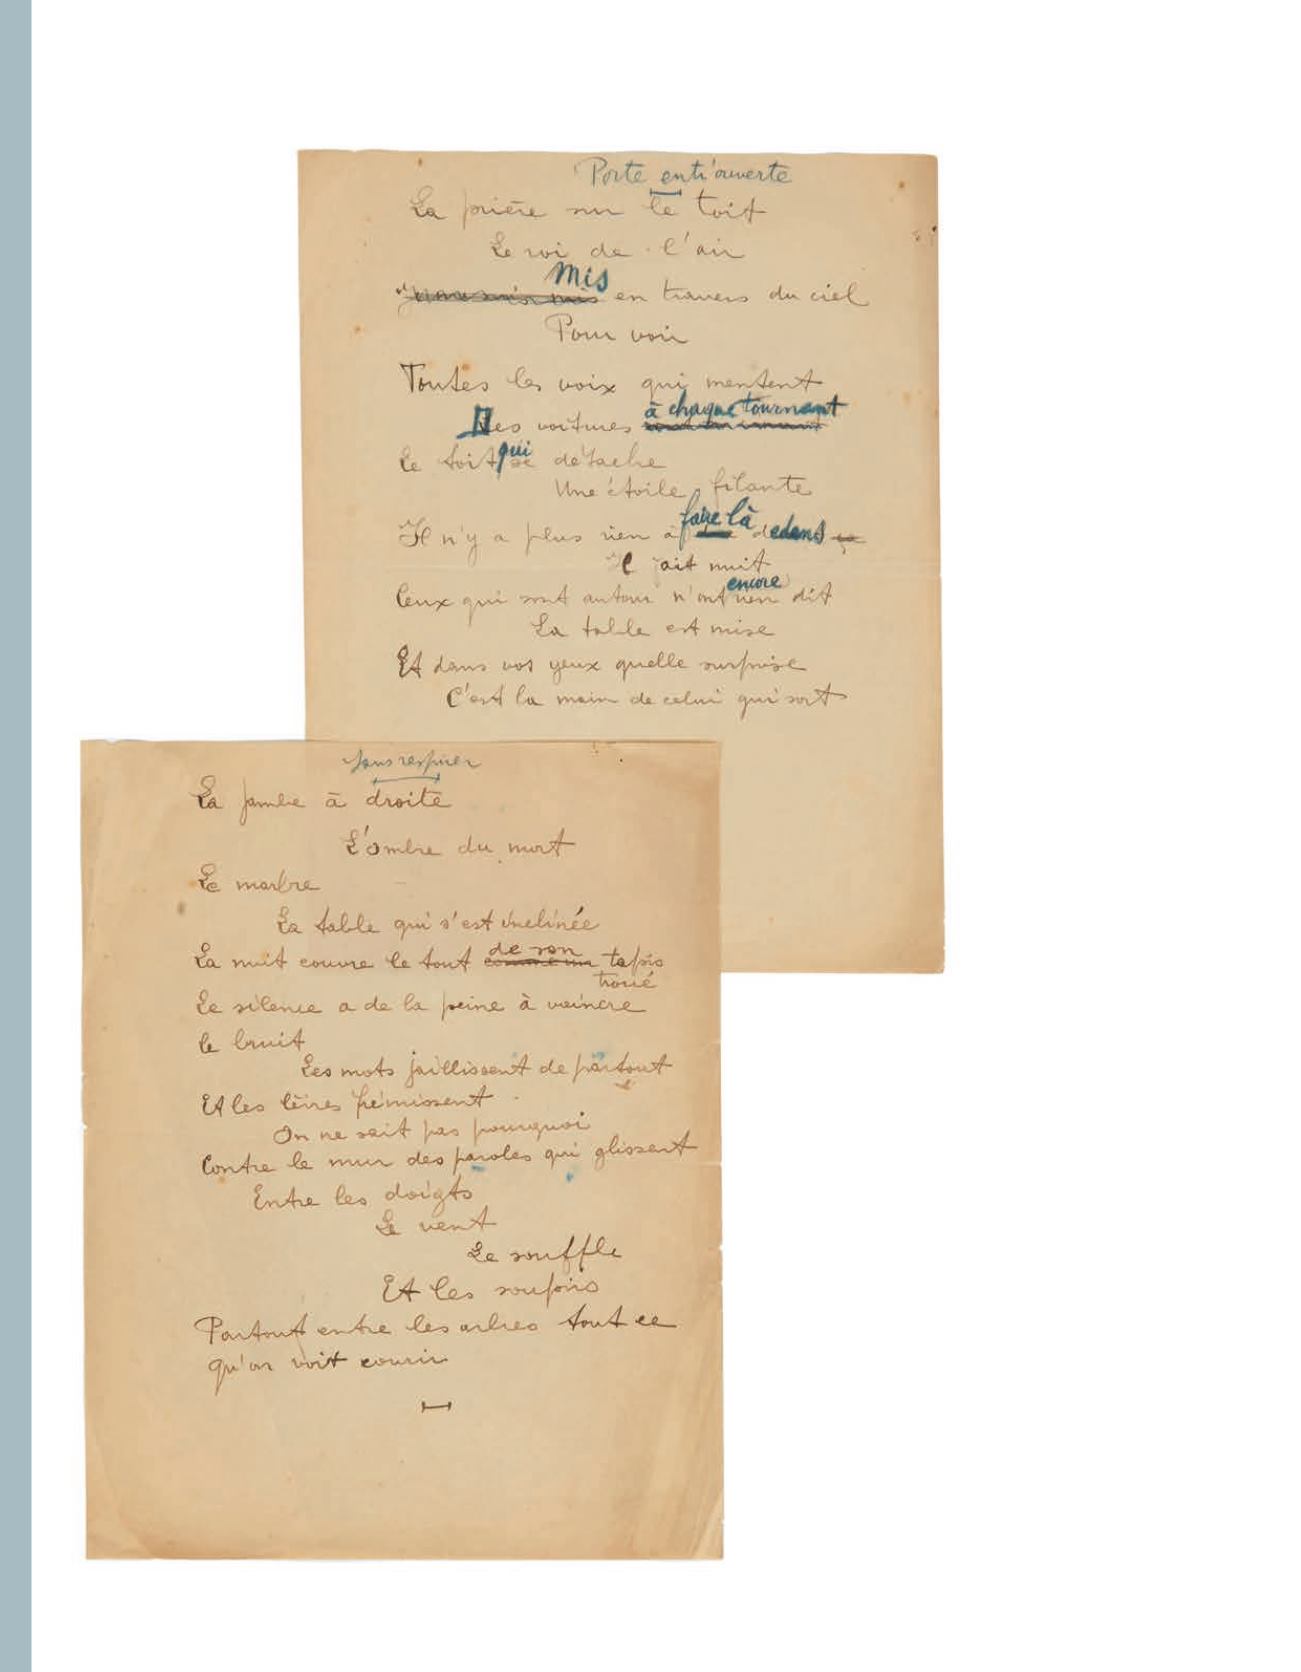 Porte entr'ouverte
La prière sur le toit
Le roi de l'air
Mis
en travers du ciel
Pour voir
Toutes les voix qui mentent
à chaque tournant
Des voitures
qui
Le toit se détache
Une étoile filante
faire là
Il n'y a plus rien à dedans
Il fait nuit
encore
Ceux qui sont autour n'ont rien dit
La table est mise
Et dans vos yeux quelle surprise
C'est la main de celui qui sort
Sans respirer
La jambe à droite
L'ombre du mort
Le marbre
La table qui s'est inclinée
de son
La nuit couvre le tout comme un tapis
troué
Le silence a de la peine à vaincre
le bruit
Les mots jaillissent de partout
Et les lèvres frémissent
On ne sait pas pourquoi
Contre le mur des paroles qui glissent
Entre les doigts
Le vent
Le souffle
Et les soupirs
Partout entre les arbres tout ce
qu'on voit courir